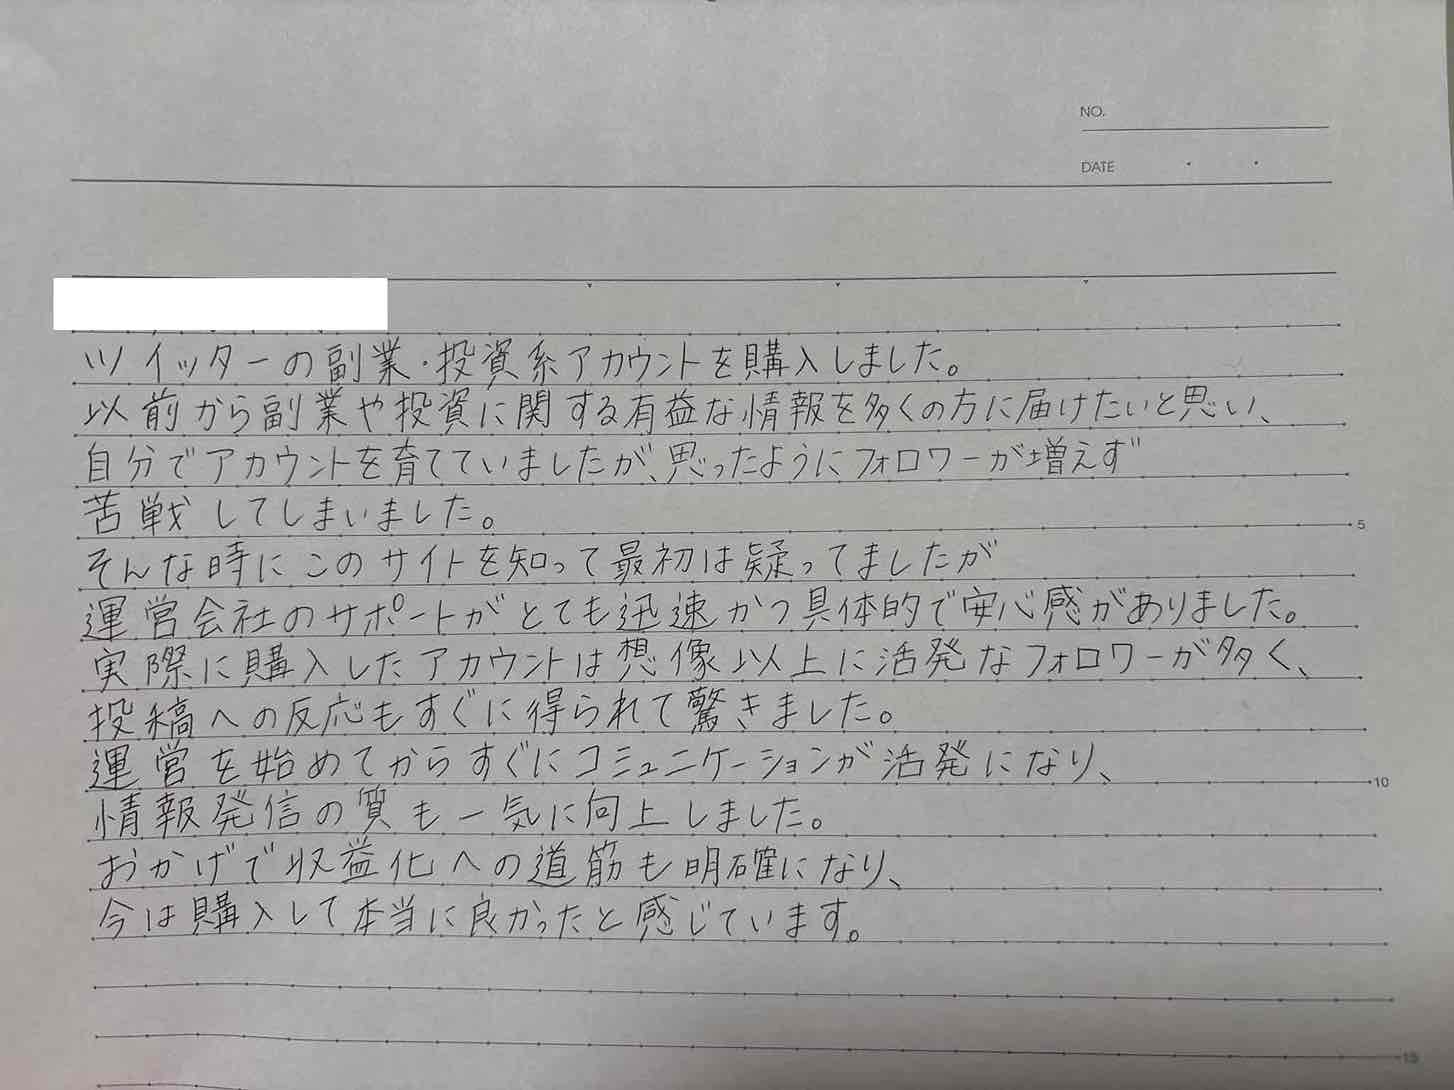 NO.
DATE
ツイッターの副業・投資系アカウントを購入しました。
以前から副業や投資に関する有益な情報を多くの方に届けたいと思い、
自分でアカウントを育てていましたが、思ったようにフォロワーが増えず
苦戦してしまいました。
5
そんな時にこのサイトを知って最初は疑ってましたが
運営会社のサポートがとても迅速かつ具体的で安心感がありました。
実際に購入したアカウントは想像以上に活発なフォロワーが多く、
投稿への反応もすぐに得られて驚きました。
運営を始めてからすぐにコミュニケーションが活発になり、
10
情報発信の質も一気に向上しました。
おかげで収益化への道筋も明確になり、
今は購入して本当に良かったと感じています。
15